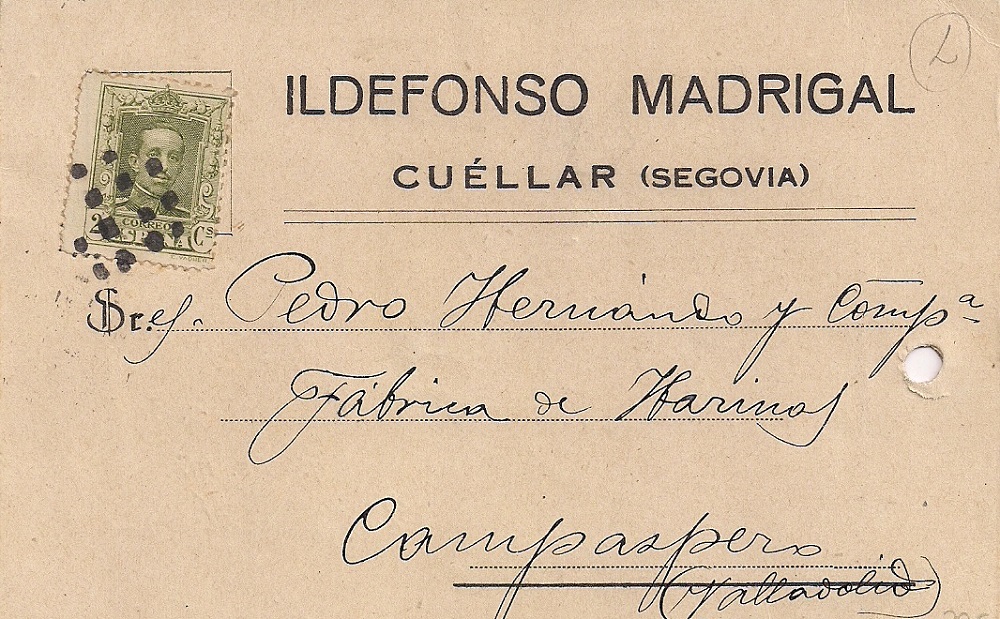 L
ILDEFONSO MADRIGAL
CUÉLLAR (SEGOVIA)
CORREOS
Cs
E. VAQUER
Sr.es. Pedro Hernándo y Compª
Fábrica de Harinas
Campaspero
(Valladolid)